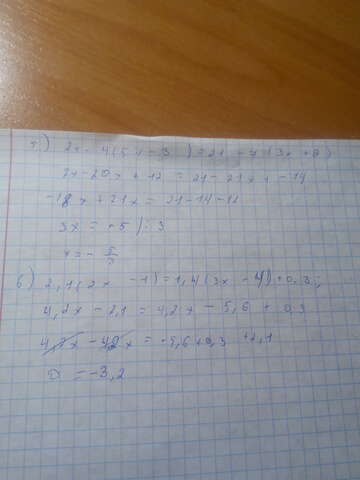 2x - 4(5x - 3) = 21 - 7(3x + 2)
2x - 20x + 12 = 21 - 21x - 14
-18x + 21x = 21 - 14 - 12
3x = -5 /: 3
x = -
б) 2,1(2x - 1) = 1,4(3x - 4) + 0,3;
4,2x - 2,1 = 4,2x - 5,6 + 0,3
4,2x - 4,2x = -5,6 + 0,3 + 2,1
0 = -3,2